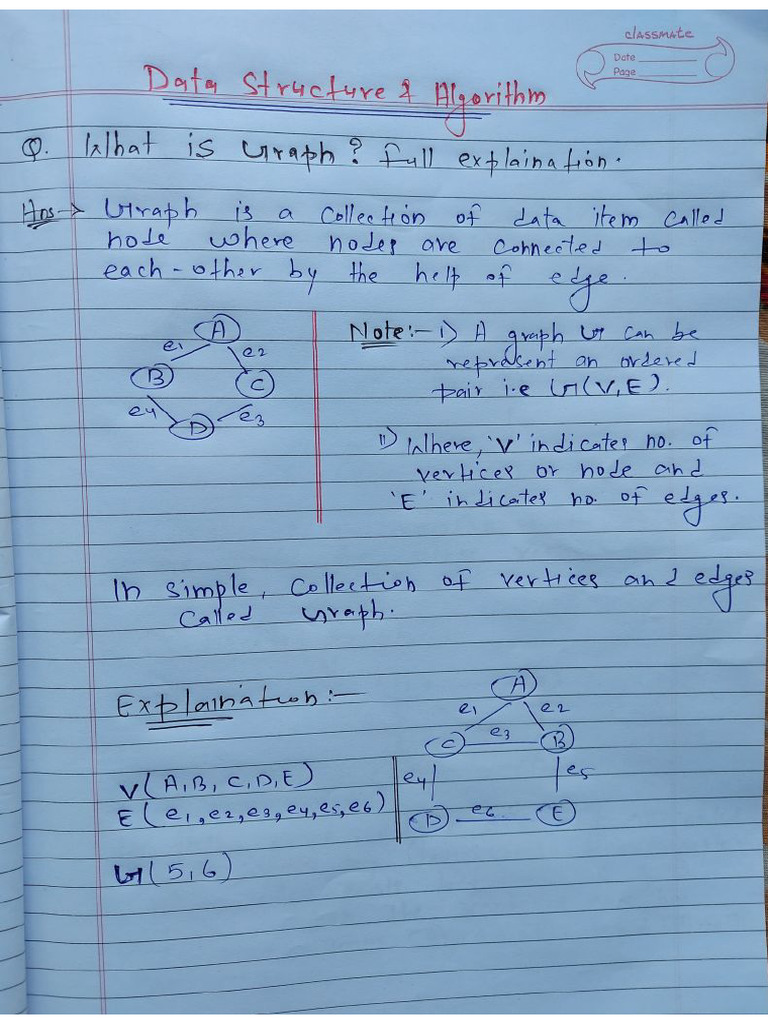 classmate
Date
Page
Data Structure & Algorithm
Q. What is Graph? full explaination.
Ans-> Graph is a collection of data item called
node where nodes are connected to
each-other by the help of edge.
A
e1
e2
B
C
e4
e3
D
Note:- i) A graph G can be
represent an ordered
pair i.e G(V,E).
ii) Where, 'V' indicates no. of
vertices or node and
'E' indicates no. of edges.
In simple, collection of vertices and edges
called Graph.
Explaination:-
A
e1
e2
C
e3
B
e4
e5
D
e6
E
V(A,B,C,D,E)
E(e1,e2,e3,e4,e5,e6)
G(5,6)